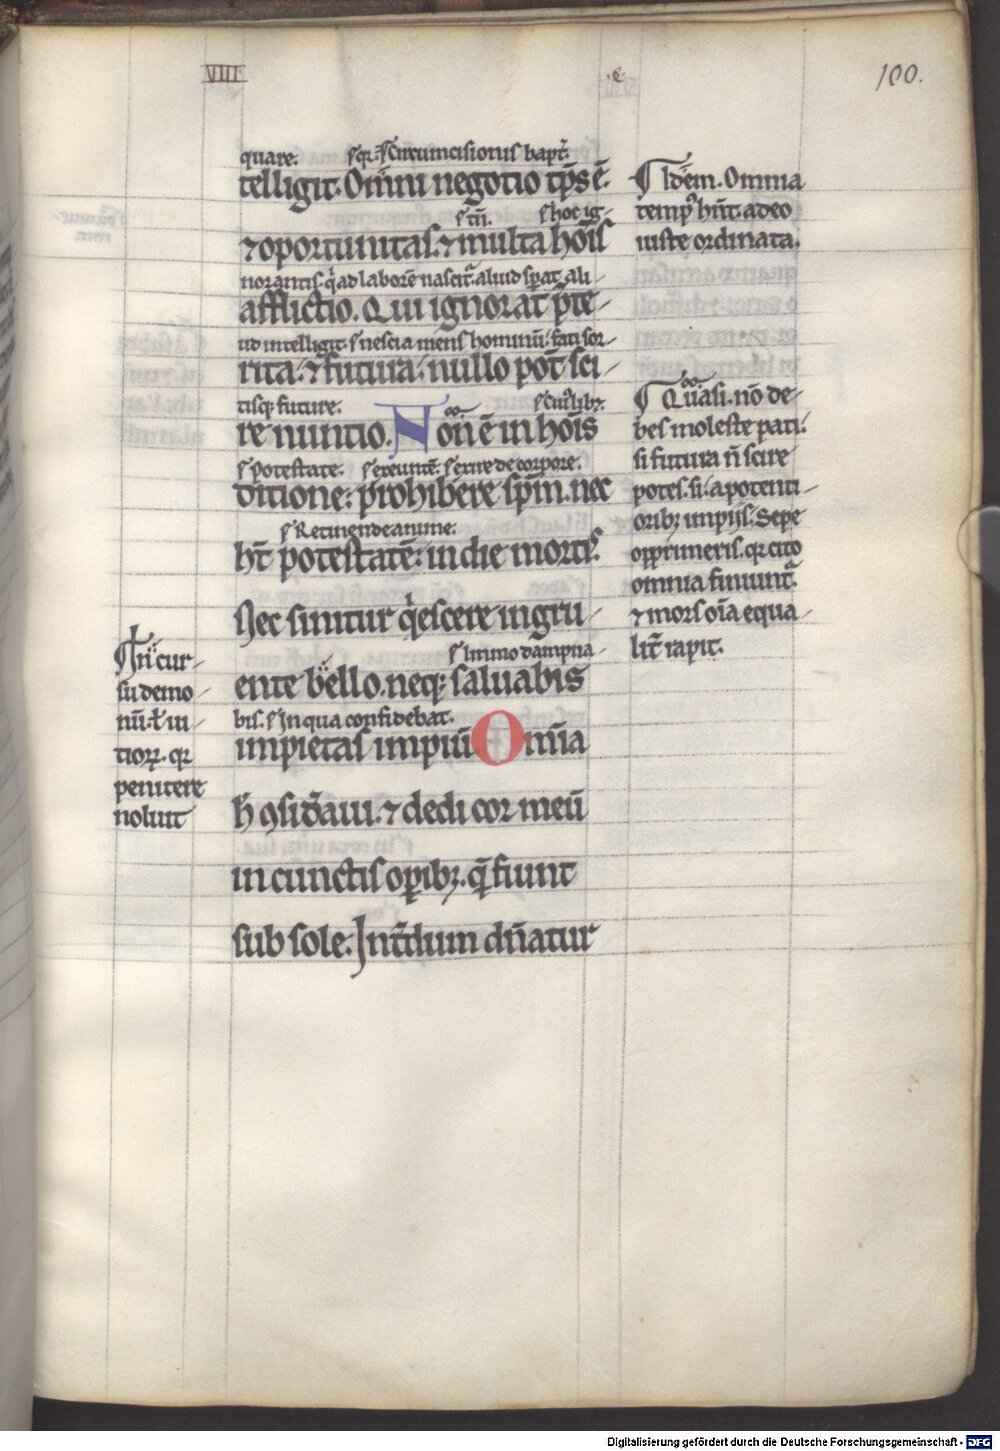 VIII
.e.
100.
quare. ſ. qꝛ. ſ. circumcisionis bapt̄.
telligit. Om̄i negotio tp̄s ē.
ſ. tn̄. ſ. hoc ig-
⁊ oportunitas. ⁊ multa hoı̄s
norantis. q̇ ad laborē nascit̄. aliud sperat. ali-
afflictio. Qui ignorat p̄te-
ud intelligit. ſ. nescia mens hominū. fati sor-
rita. ⁊ futura. nullo pot̄ sci-
tisqꝫ future. ſ. cuiuslibꝫ.
re nuntio. Non ē in hoı̄s
ſ. potestate. ſ. exeuntē. ſ. exire de corpore.
ditione: prohibere sp̄m. nec
ſ. Retinende anime.
ht̄ potestatē: in die mortis.
Nec sinitur q̇escere ingru-
ſ. Immo dampna-
ente bello. neqꝫ saluabis
bis. ſ. In qua confidebat.
impietas impiū. Omı̄a
h̄ ꝯsid̄aui. ⁊ dedi cor meū
in cunctis opibꝫ. q̄ fiunt
sub sole. Int̄dum dn̄atur
¶ Idem. Omnia
temp̄ hn̄t. adeo
iuste ordinata.
¶ Quasi. nō de-
bes moleste pati.
si futura n̄ scire
potes. si. a potenti-
oribꝫ impijs. Sepe
opprimeris. qꝛ cito
omnia finiunt̄.
⁊ mors oı̄a equa-
lit̄ rapit.
¶ In cur-
su demo-
nū. ł ui-
tioꝝ. qꝛ
penitere
noluit
Digitalisierung gefördert durch die Deutsche Forschungsgemeinschaft - DFG